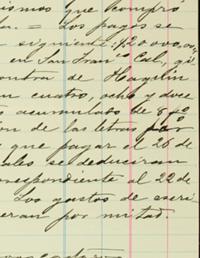 ismos que compró
n. = Los pagos se
siguiente: $20.000,00
en San Fran.co Cal., gi
contra de Hagelin
en cuatro, ocho y doce
s acumulado de 8%
ón de las letras
que pagar el 26 de
ales se deducirán
rrespondiente al 22 de
Los gastos de escri
eran por mitad.